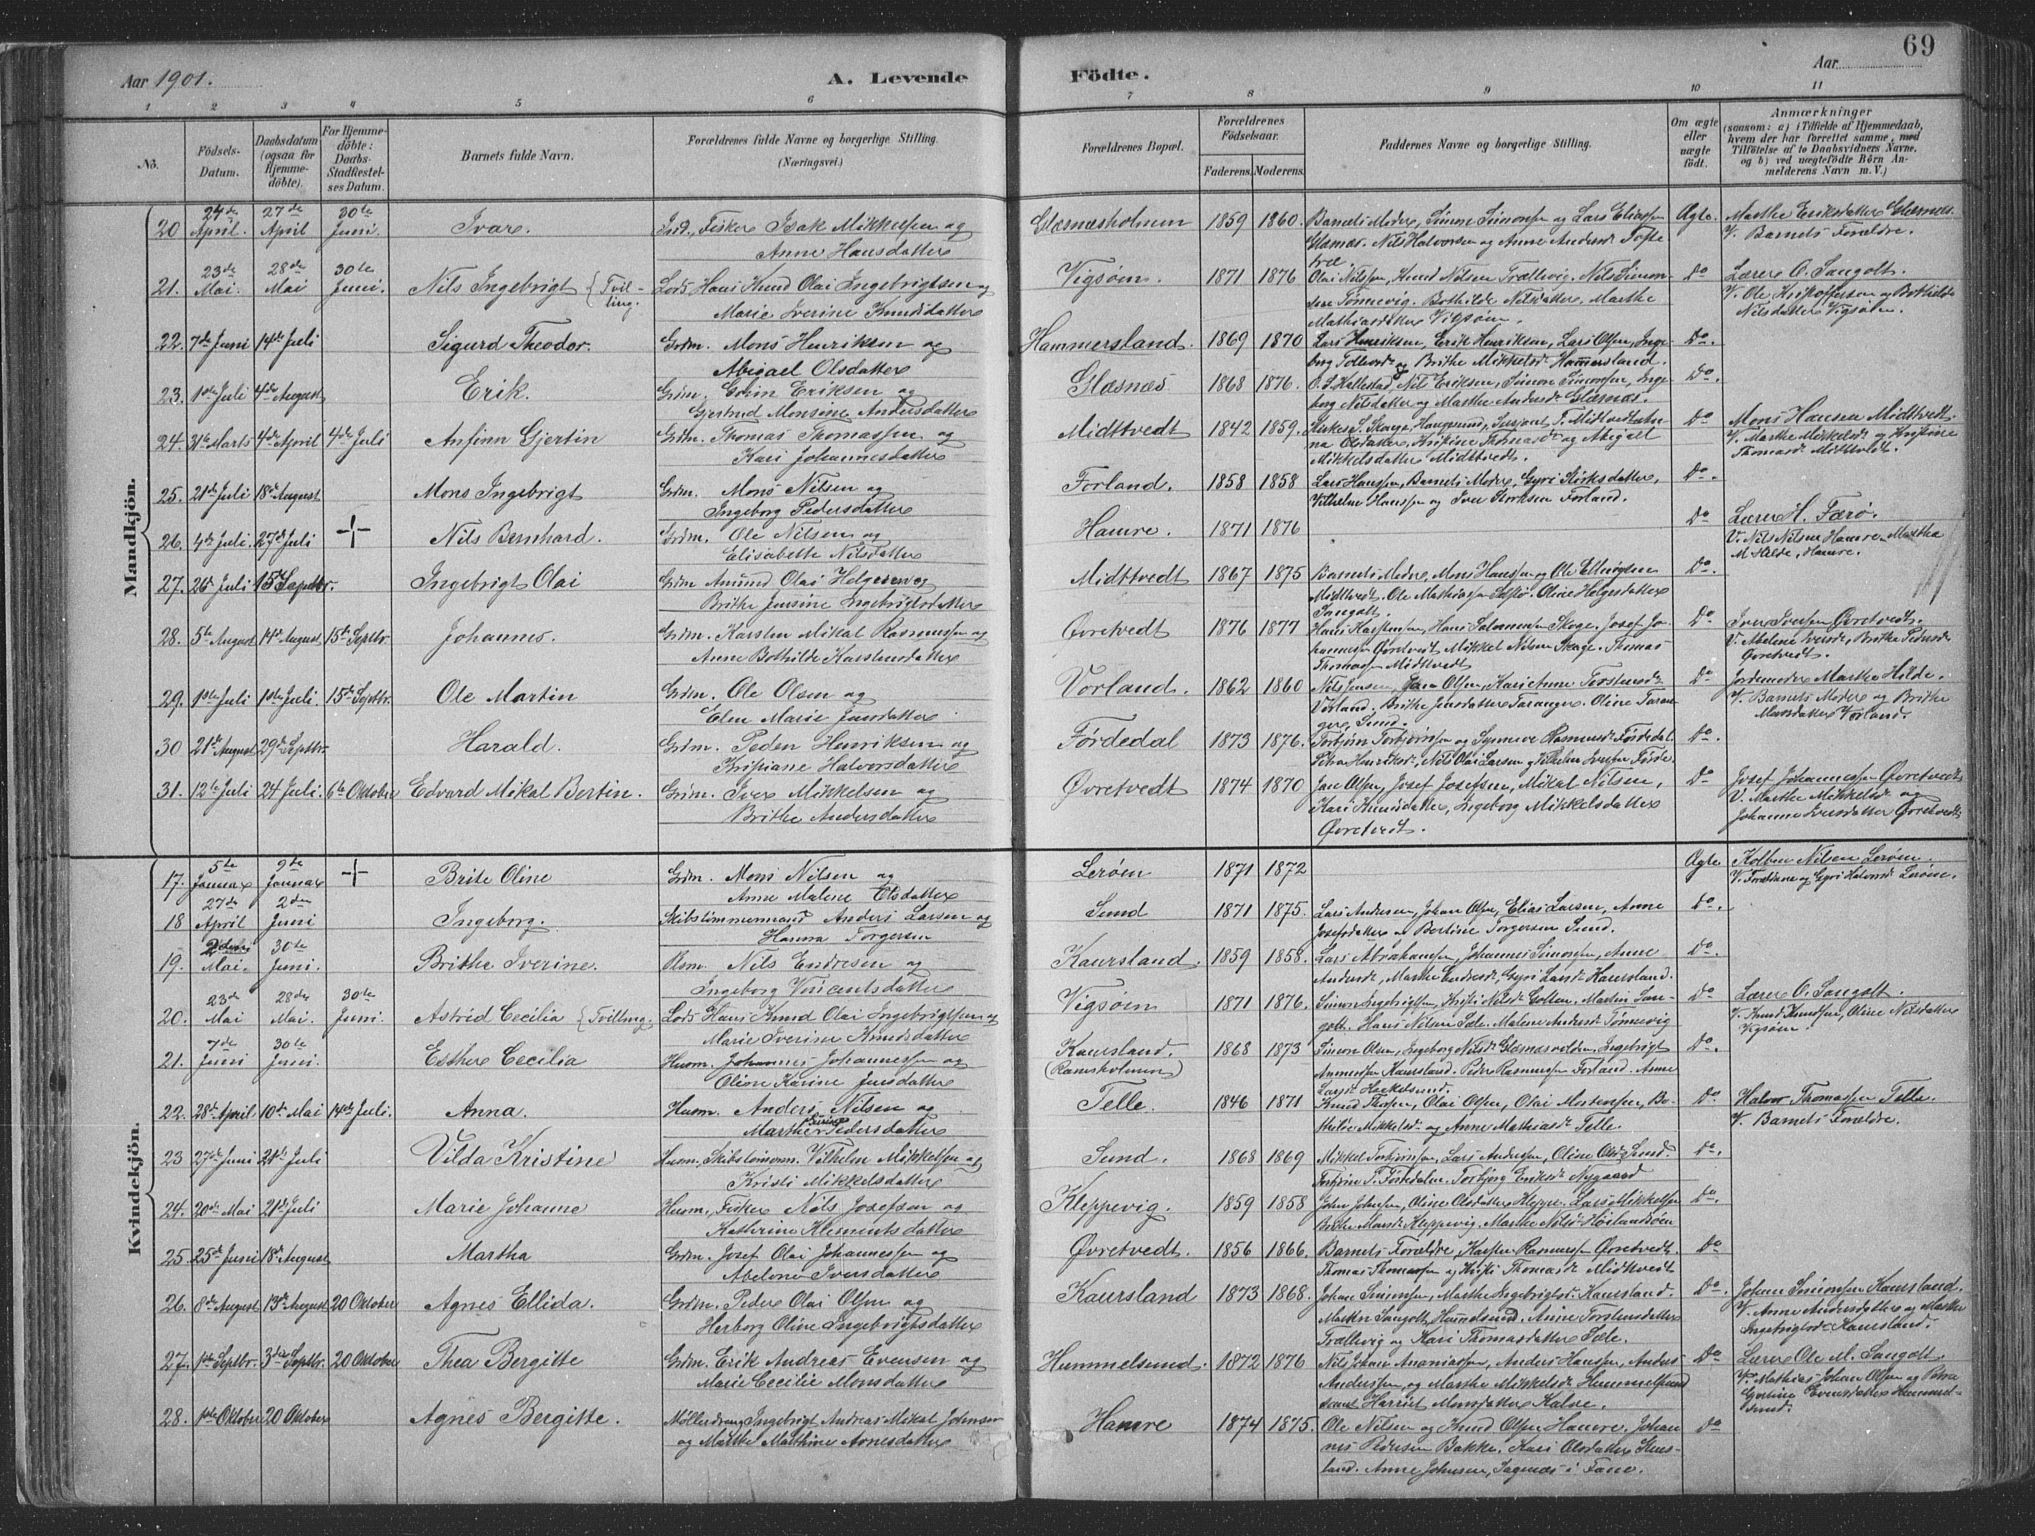 69
Aar 1901. A. Levende Födte. Aar
1 2 3 4 5 6 7 8 9 10 11
No. Födsels-Datum. Daabsdatum (ogsaa for Hjemme-döbte). For Hjemme-döbte: Daabs-Stadfæstel-ses Datum. Barnets fulde Navn. Forældrenes fulde Navne og borgerlige Stilling. (Næringsvei.) Forældrenes Bopæl. Forældrenes Födselsaar. Faderens. Moderens. Faddernes Navne og borgerlige Stilling. Om ægte eller uægte födt. Anmærkninger (saasom: a) i Tilfælde af Hjemmedaab, hvem der har forrettet samme, med Tilföielse af to Daabsvidners Navne, og b) ved uægtefödte Börn An-melderens Navn m. V.)
Mandkjön.
20 24de April. 27de April 30te Juni. Ivar. Ind., Fisker Isak Mikkelsen og Anne Hansdatter Glæsnæsholmen 1859 1860. Barnets Moder, Simon Simonsen og Lars Eliassen Glæsnæs. Nils Halvorsen og Anne Andersd. Tofte Ægte. Marthe Eriksdatter Glæsnæs. V. Barnets Forældre.
21. 23de Mai. 28de Mai 30te Juni. Nils Ingebrigt {Tvil-ling. Lods Hans Knud Olai Ingebrigtsen og Marie Iverine Knudsdatter Vigsøen. 1871 1876 Olai Nilssen, Knud Nilsen Trællevig. Nils Simonsen Tømmevig. Bothilde Nilsdatter, Marthe Mathiasdatter Vigsøen. Do Lærer O. Sangolt. V. Ole Kristoffersen og Bothilde Nilsdatter Vigsøen.
22. 7de Juni 14de Juli Sigurd Theodor. Grdm. Mons Henriksen og Abigael Olsdatter Hammersland. 1869 1870 Lars Henriksen, Erik Henriksen, Lars Olsen, Ingeborg og Brithe Mikkelsd. Hammersland. Do.
23. 1ste Juli 4de August Erik. Grdm. Eriksen og Gjertrud Monsine Andersdatter Glæsnæs 1868 1876. O. S. Hallestad, Nils Eriksen, Simon Simonsen, Ingeborg Nilsdatter og Marthe Andersd. Glæsnæs. Do.
24. 31te Marts 4de April 4de Juli Anfinn Gjertin Grdm. Thomas Thomassen og Kari Johannesdatter Midttvedt 1842 1859. Olsdatter, Kristine Thomasd. og Abigael Mikkelsdatter Midttvedt. Do Mons Hansen Midttvedt. V. Marthe Mikkelsd. og Kristine Thomasd. Midttvedt.
25. 21de Juli 18de August Mons Ingebrigt Grdm. Mons Nilsen og Ingeborg Pedersdatter Forland. 1858 1858 Lars Hanssen, Barnets Moder, Gyri Størksdatter, Vilhelm Hanssen og Iver Størksen Forland. Do.
26. 4de Juli. 27de Juli + Nils Bernhard. Grdm. Ole Nilsen og Elisabeth Nilsdatter Hamre. 1871 1876 Do Lærer H. Færø. V. Nils Nilsen Hamre. Martha M. Hilde, Hamre.
27. 26 Juli 15 Septbr. Ingebrigt Olai Grdm Amund Olai Helgesen og Brithe Jensine Ingebrigtsdatter Midttvedt 1867 1875 Barnets Moder, Mons Hansen og Ole Ellingsen Midttvedt. Ole Mathiassen Selstø. Oline Helgesdatter Sangolt. Do.
28. 5te August 14de August 15te Septbr. Johannes. Grdm. Karsten Mikal Rasmussen og Anne Bothilde Karstensdatter Øvretvedt 1876 1877 Hans Karstensen, Hans Salomonsen Skoge, Josef Johannessen Øvretvedt Mikkel Nilsen Skoge. Thomas Thomassen Midttvedt Do Iver Iversen Øvretvedt. V. Abelone Iversd., Brithe Pedersd. Øvretvedt.
29. 1ste Juli 1ste Juli. 15de Septbr. Ole Martin Grdm. Ole Olsen og Elen Marie Jensdatter Vorland. 1862 1860 Nils Jensen, Jan Olsen, Kari Anne Torstensd. Vorland. Brithe Jensdatter Taranger. Oline Taranger, Sund. Do Jordmoder Marthe Hilde. V. Barnets Moder og Brithe Monsdatter Vorland.
30 21de August 29de Septbr. Harald. Grdm. Peder Henriksen og Kristiane Halvorsdatter Førdedal 1873 1876. Torbjørn Torbjørnsen og Synneve Rasmusd. Førdedal. Petra Henriksd., Nils Olai Larsen og Vilhelm Iversen Førde Do.
31. 12te Juli 24 Juli. 6te Oktober Edvard Mikal Bertin. Grdm. Iver Mikkelsen og Brithe Andersdatter Øvretvedt 1874 1870 Jan Olsen, Josef Josefsen, Mikal Nilsen, Kari Hansdatter, Ingeborg Mikkelsdatter Øvretvedt. Do Josef Johannessen Øvretvedt V. Marthe Mikkelsd. og Johanne Iversdatter Øvretvedt
Kvindekjön.
17. 5te Januar 9de Januar + Brite Oline Grdm. Mons Nilsen og Anne Malene Olsdatter Lerøen 1871 1872 Ægte Kolben Nilsen Lerøen. V. Forældrene og Gyri Halvorsd. Lerøen.
18 27de April 2den Juni Ingeborg. Skibstømmermand Anders Larsen og Hanna Torgersen Sund 1871 1875. Lars Andersen, Johan Olsen, Elias Larsen, Anne Josefsdatter og Bertine Torgersen Sund. Do.
19. 2den Mai. 30te Juni. Brithe Iverine. Rsm. Nils Endresen og Ingeborg Vincentsdatter Kaursland. 1859 1858. Lars Abrahamsen, Johannes Simonsen, Anne Andersd., Marthe Endresd., Gyri Larsd. Kaursland. Do.
20. 23de Mai 28de Mai. 30te Juni. Astrid Cecilia {Tvilling. Lods Hans Knud Olai Ingebrigtsen og Marie Iverine Knudsdatter Vigsøen 1871 1876. Simon Ingebrigtsen, Kristi Nilsd. Golten. Martin Sangolt. Hans Nilsen Tele. Malene Andersd. Tømmevig Do Lærer O. Sangolt. V. Knud Knudsen, Oline Nilsdatter Vigsøen.
21. 7de Juni 30te Juni. Esther Cecilia Husm. Johannes Johannessen og Oline Karine Jensdatter Kaursland. (Ramsholmen) 1868 1873 Simon Olsen, Ingeborg Nilsd. Glæsnæsvolden. Ingebrigt Kaursland. Peder Rasmussen Forland. Anne Larsd. Do.
22. 28de April 10de Mai 14de Juli. Anna. Husm. Anders Nilsen og Marthe Pedersdatter Telle. 1846 1871 Knud Thossen, Olai Olsen, Olai Mortensen, Bothilde Mikkelsd. og Anne Mathiasd. Telle. Do Halvor Thomassen Telle. V. Barnets Forældre.
23 27de Juni 21de Juli Vilda Kristine Husm. Skibstømm. Vilhelm Mikkelsen og Kristi Mikkelsdatter Sund. 1868 1869 Mikkel Torbjørnsen, Lars Andersen, Oline Olsd. Sund. Torbjørn T. Førdedalen. Torbjørg Eriksd. Nygaard Do.
24. 20de Mai 21de Juli Marie Johanne Husm., Fisker Nils Josefsen og Kathrine Klementsdatter Kleppevig. 1859 1858 John Johnsen, Oline Olsdatter Kleppe. Lars Mikkelsen, Brithe Monsd. Kleppevig. Marthe Nilsd. Høilandsøen Do.
25. 25de Juni 18de August Martha Grdm. Josef Olai Johannessen og Abelone Iversdatter Øvretvedt. 1856 1866. Barnets Forældre, Karsten Rasmussen Øvretvedt. Thomas Thomassen og Kristi Thomasd. Midttvedt Do
26. 8de August 13de August 20 Oktober Agnes Ellida. Grdm. Peder Olai Olsen og Herborg Oline Ingebrigtsdatter Kaursland 1873 1868. Johan Simonsen, Marthe Ingebrigtsd. Kaursland. Marten Sangolt, Hummelsund. Anne Torstensdatter Trællevig og Kari Thomasdatter Tæle. Do. Johan Simonsen Kaursland. V. Anne Andersdatter og Marthe Ingebrigtsd. Kaursland.
27. 1ste Septbr. 3die Septbr. 20 Oktober Thea Bergitte Grdm. Erik Andreas Evensen og Marie Cecilie Monsdatter Hummelsund. 1872 1876 Nils Johan Ananiassen, Anders Hanssen, Anders Anderssen, og Marthe Mikkelsd. Hummelsund samt Harriet Monsdatter Kalve. Do Lærer Ole M. Sangolt. V. Mathias Johan Olsen og Petra Gurine Evensdatter Hummelsund.
28. 1ste Oktober 20 Oktober Agnes Bergitte. Møllerdreng Ingebrigt Andreas Mikal Johnsen og Marthe Mathine Arnesdatter Hamre 1874 1875. Ole Nilsen og Knud Olsen Hamre. Johannes Pedersen Bakke. Kari Olsdatter Stensland. Anne Johnsen, Sagenæs i Fane. Do